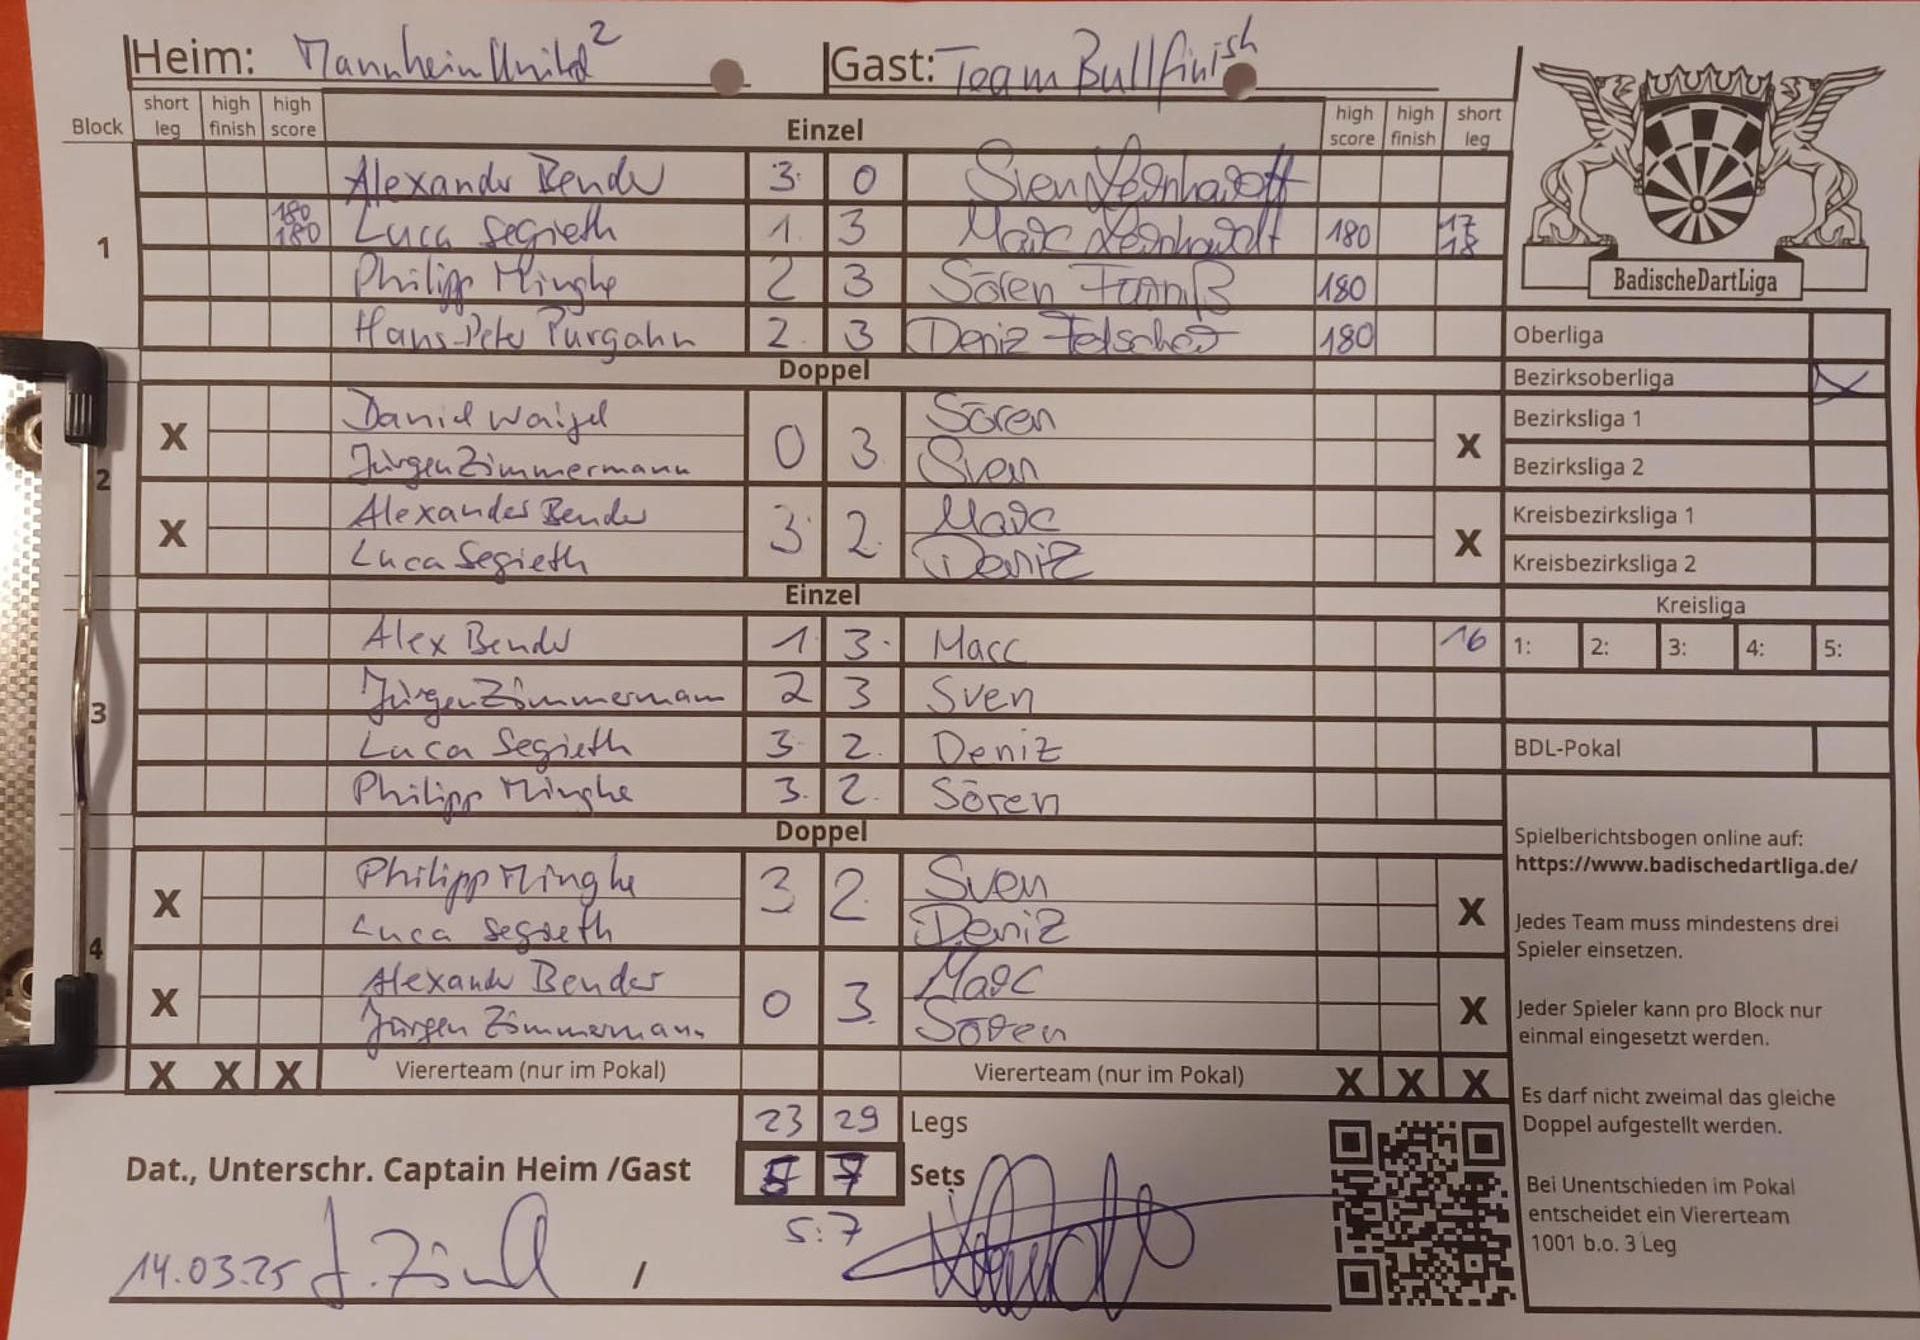 Heim: Mannheim United 2 Gast: Team Bullfinish
Block short leg high finish high score Einzel high score high finish short leg
1
Alexander Bender 3 0 Sven Leonhardt
180 180 Luca Segieth 1 3 Marc Leonhardt 180 17 18
Philipp Minghe 2 3 Sören 180
Hans-Peter Purgahn 2 3 Deniz 180
Doppel
2
X Daniel Waigel 0 3 Sören X
Jürgen Zimmermann Sven
X Alexander Bender 3 2 Marc X
Luca Segieth Deniz
Einzel
3
Alex Bender 1 3 Marc 16
Jürgen Zimmermann 2 3 Sven
Luca Segieth 3 2 Deniz
Philipp Minghe 3 2 Sören
Doppel
4
X Philipp Minghe 3 2 Sven X
Luca Segieth Deniz
X Alexander Bender 0 3 Marc X
Jürgen Zimmermann Sören
X X X Viererteam (nur im Pokal) Viererteam (nur im Pokal) X X X
23 29 Legs
Dat., Unterschr. Captain Heim /Gast 5 7 Sets
5:7
14.03.25 /
BadischeDartLiga
Oberliga
Bezirksoberliga X
Bezirksliga 1
Bezirksliga 2
Kreisbezirksliga 1
Kreisbezirksliga 2
Kreisliga
1: 2: 3: 4: 5:
BDL-Pokal
Spielberichtsbogen online auf:
https://www.badischedartliga.de/
Jedes Team muss mindestens drei
Spieler einsetzen.
Jeder Spieler kann pro Block nur
einmal eingesetzt werden.
Es darf nicht zweimal das gleiche
Doppel aufgestellt werden.
Bei Unentschieden im Pokal
entscheidet ein Viererteam
1001 b.o. 3 Leg